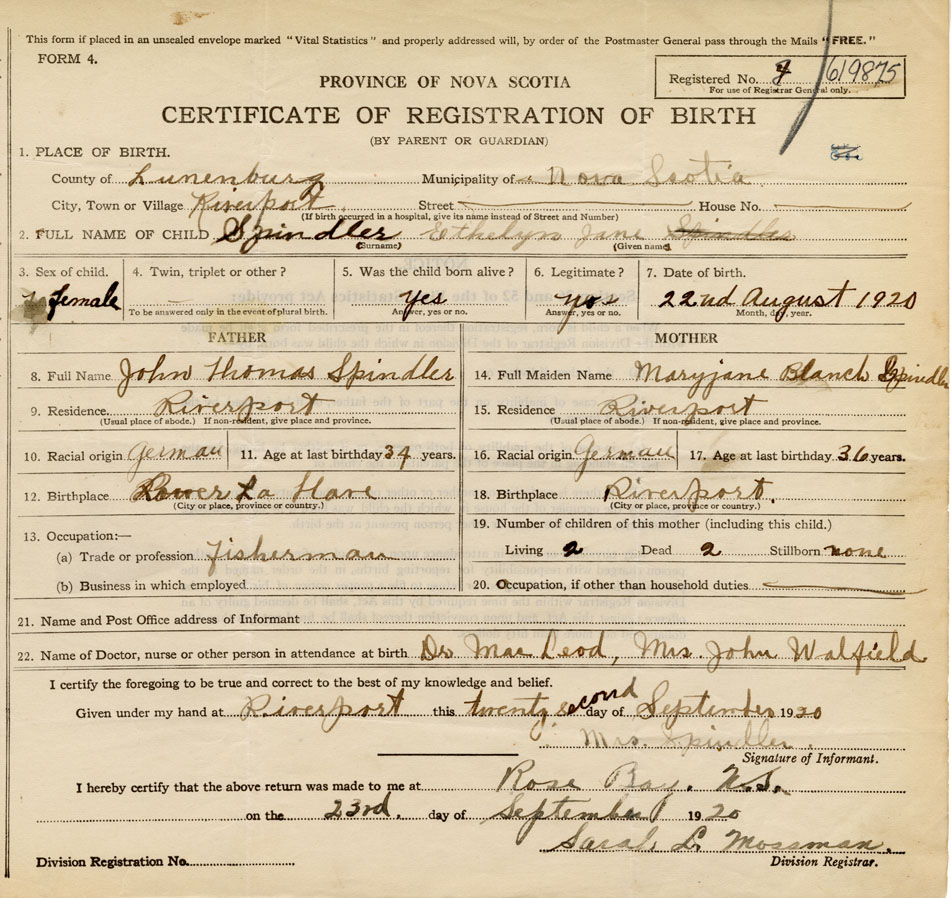 This form if placed in an unsealed envelope marked "Vital Statistics" and properly addressed will, by order of the Postmaster General pass through the Mails "FREE."
FORM 4.
Registered No. 619875
For use of Registrar General only.
PROVINCE OF NOVA SCOTIA
CERTIFICATE OF REGISTRATION OF BIRTH
(BY PARENT OR GUARDIAN)
1. PLACE OF BIRTH.
County of Lunenburg Municipality of Nova Scotia
City, Town or Village Riverport Street House No.
(If birth occurred in a hospital, give its name instead of Street and Number)
2. FULL NAME OF CHILD Spindler Ethelyn Jane Spindler
(Surname) (Given name)
3. Sex of child. 4. Twin, triplet or other? 5. Was the child born alive? 6. Legitimate? 7. Date of birth.
female Yes yes 22nd August 1920
To be answered only in the event of plural birth. Answer, yes or no. Answer, yes or no. Month, day, year.
FATHER MOTHER
8. Full Name John Thomas Spindler 14. Full Maiden Name Maryjane Blanch Spindler
9. Residence. Riverport 15. Residence Riverport
(Usual place of abode.) If non-resident, give place and province. (Usual place of abode.) If non-resident, give place and province.
10. Racial origin German 11. Age at last birthday 34 years. 16. Racial origin German 17. Age at last birthday 36 years.
12. Birthplace Lower La Have 18. Birthplace Riverport.
(City or place, province or country.) (City or place, province or country.)
13. Occupation:— 19. Number of children of this mother (including this child.)
(a) Trade or profession fisherman Living 2 Dead 2 Stillborn none
(b) Business in which employed 20. Occupation, if other than household duties.
21. Name and Post Office address of Informant
22. Name of Doctor, nurse or other person in attendance at birth Dr Mac Leod, Mrs John Walfield
I certify the foregoing to be true and correct to the best of my knowledge and belief.
Given under my hand at Riverport this twenty second day of September 1920
Mrs. Spindler.
Signature of Informant.
I hereby certify that the above return was made to me at Rose Bay. N.S.
on the 23rd. day of September 1920
Sarah L. Mossman.
Division Registration No. Division Registrar.